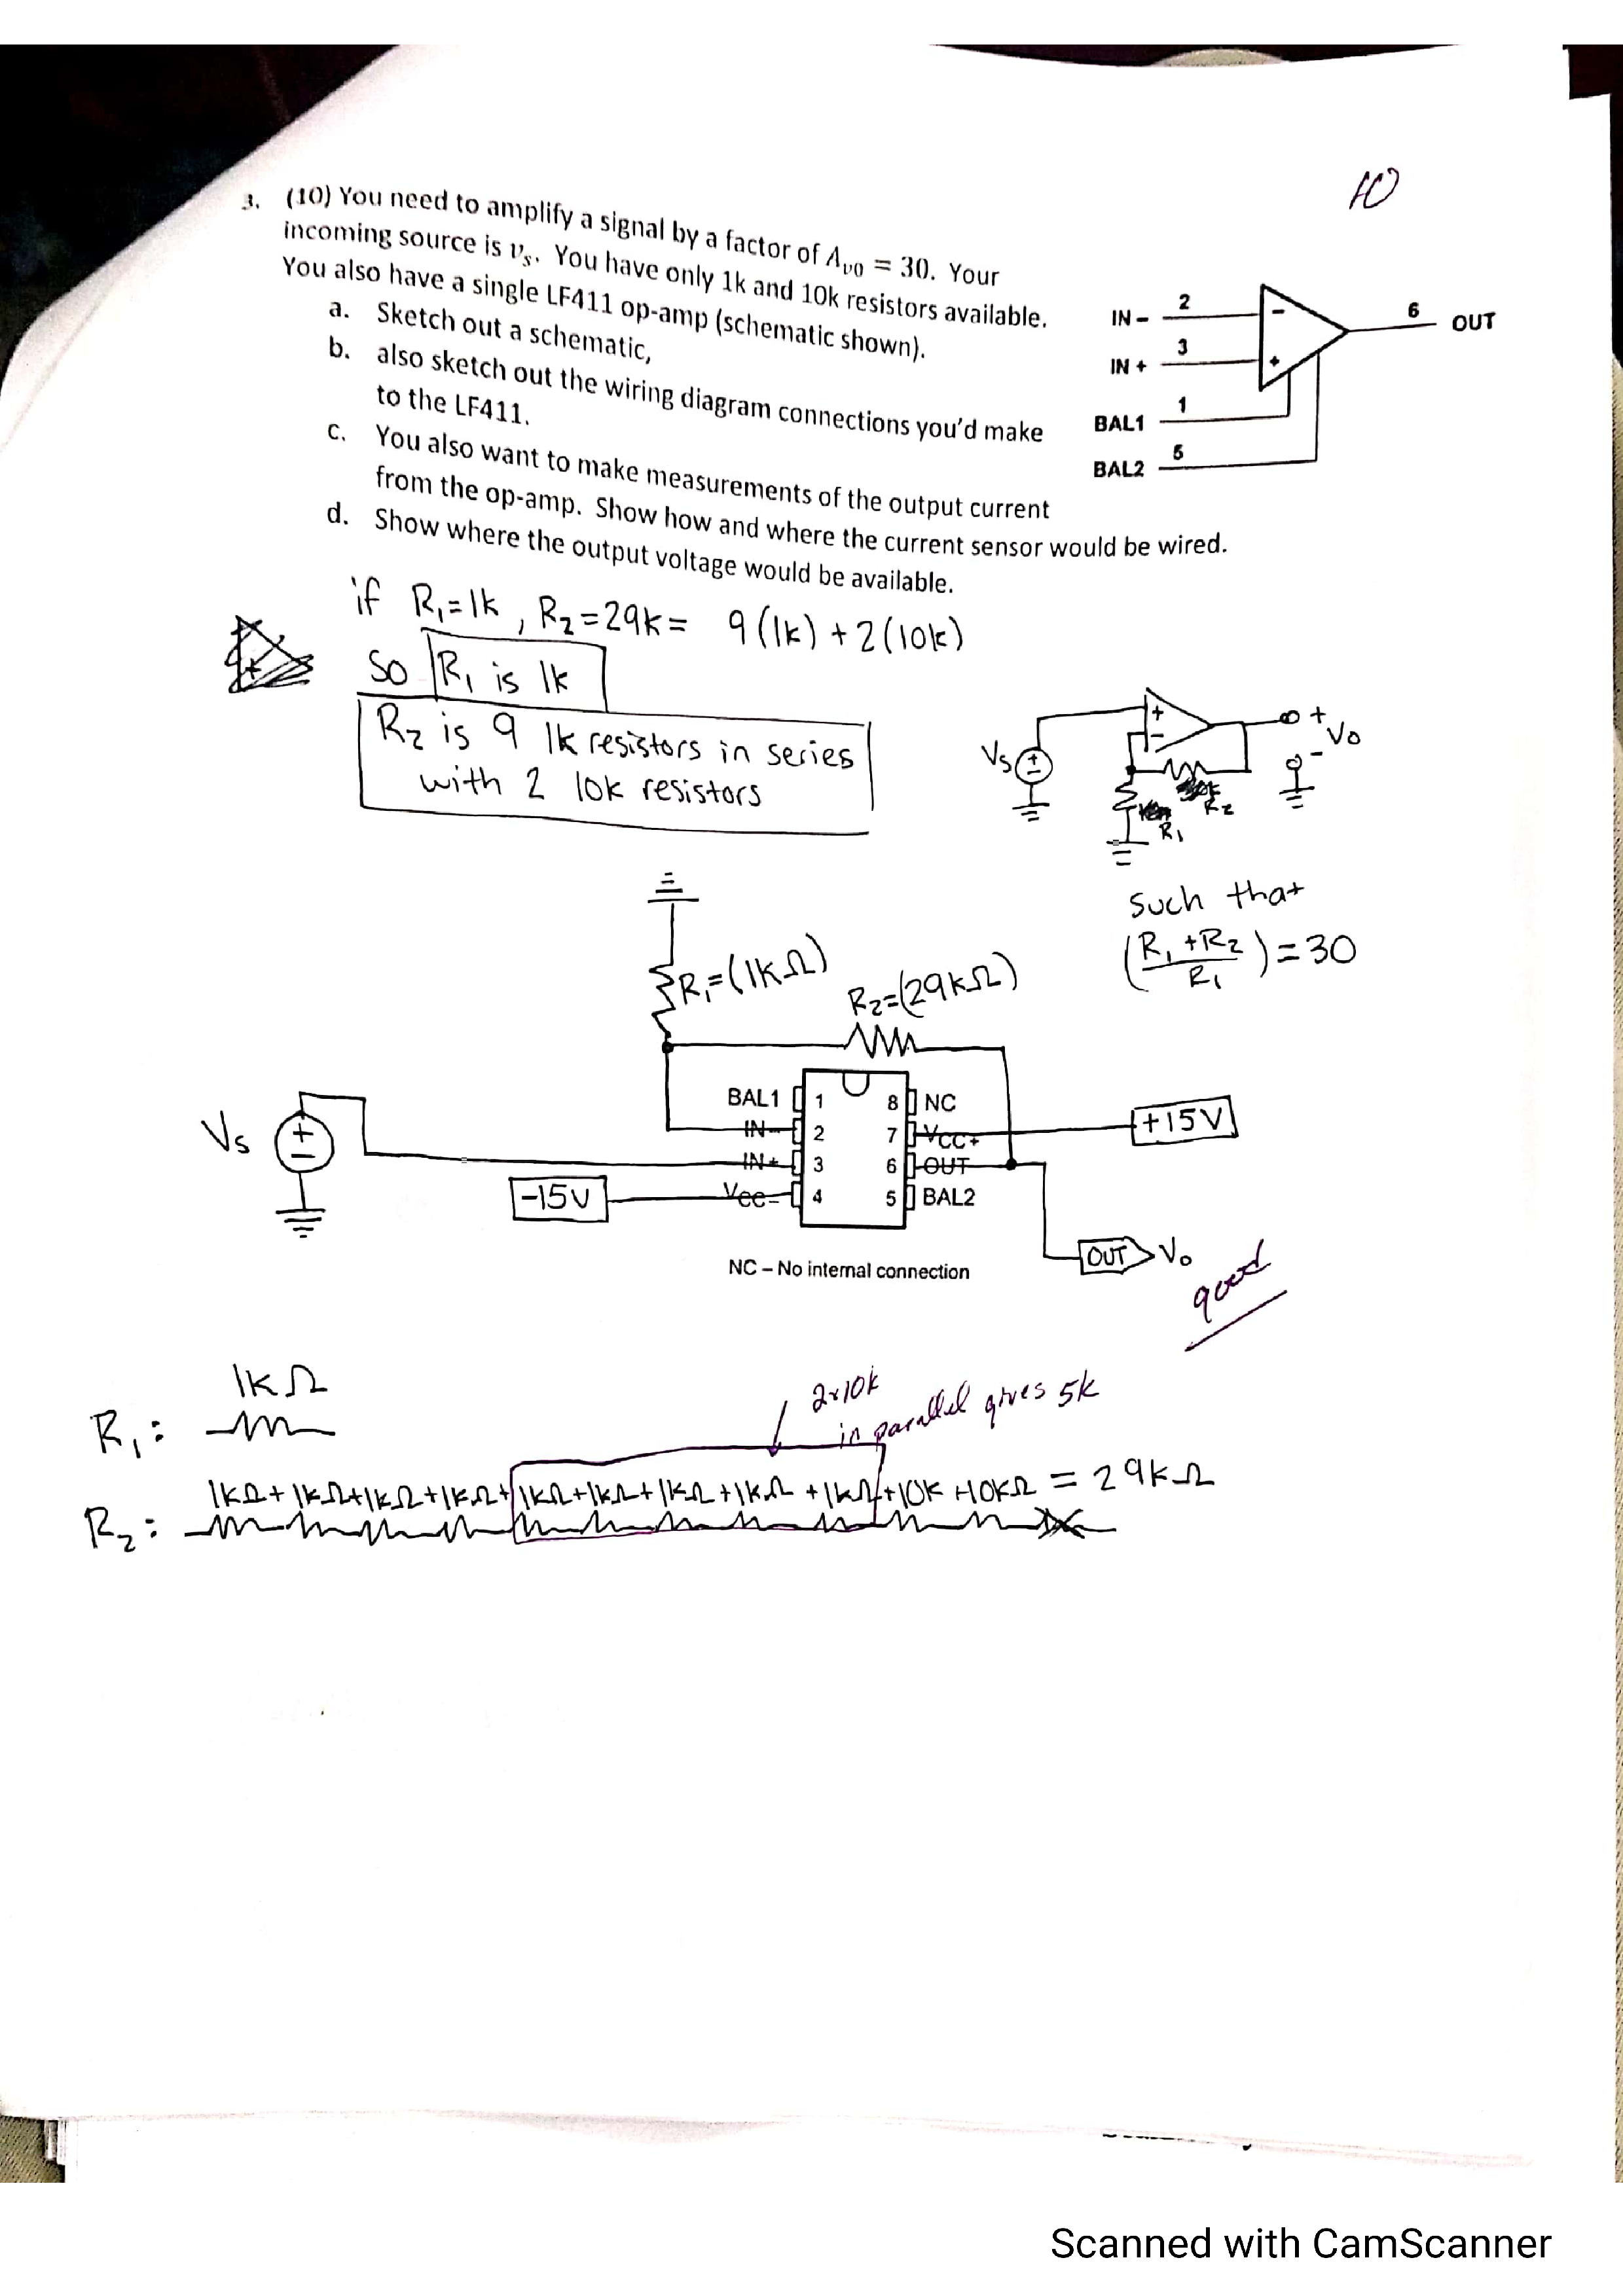 10
3. (10) You need to amplify a signal by a factor of A_v0 = 30. Your
incoming source is v_s. You have only 1k and 10k resistors available.
You also have a single LF411 op-amp (schematic shown).
a. Sketch out a schematic,
b. also sketch out the wiring diagram connections you'd make
to the LF411.
c. You also want to make measurements of the output current
from the op-amp. Show how and where the current sensor would be wired.
d. Show where the output voltage would be available.
IN - 2
IN + 3
BAL1 1
BAL2 5
- +
6 OUT
if R₁=1k, R₂=29k= 9(1k)+2(10k)
so R₁ is 1k
R₂ is 9 1k resistors in series
with 2 10k resistors
Vs + - + - R₂ R₁ + Vo -
such that
(R₁+R₂/R₁)=30
R₁=(1kΩ)
R₂=(29kΩ)
BAL1 1 8 NC
IN- 2 7 VCC+ +15V
Vs + - IN+ 3 6 OUT
-15V Vcc- 4 5 BAL2
OUT Vo
NC – No internal connection
good
1kΩ
R₁:
2x10k
in parallel gives 5k
1kΩ+1kΩ+1kΩ+1kΩ+1kΩ+1kΩ+1kΩ+1kΩ+1kΩ+10k+10kΩ = 29kΩ
R₂:
Scanned with CamScanner